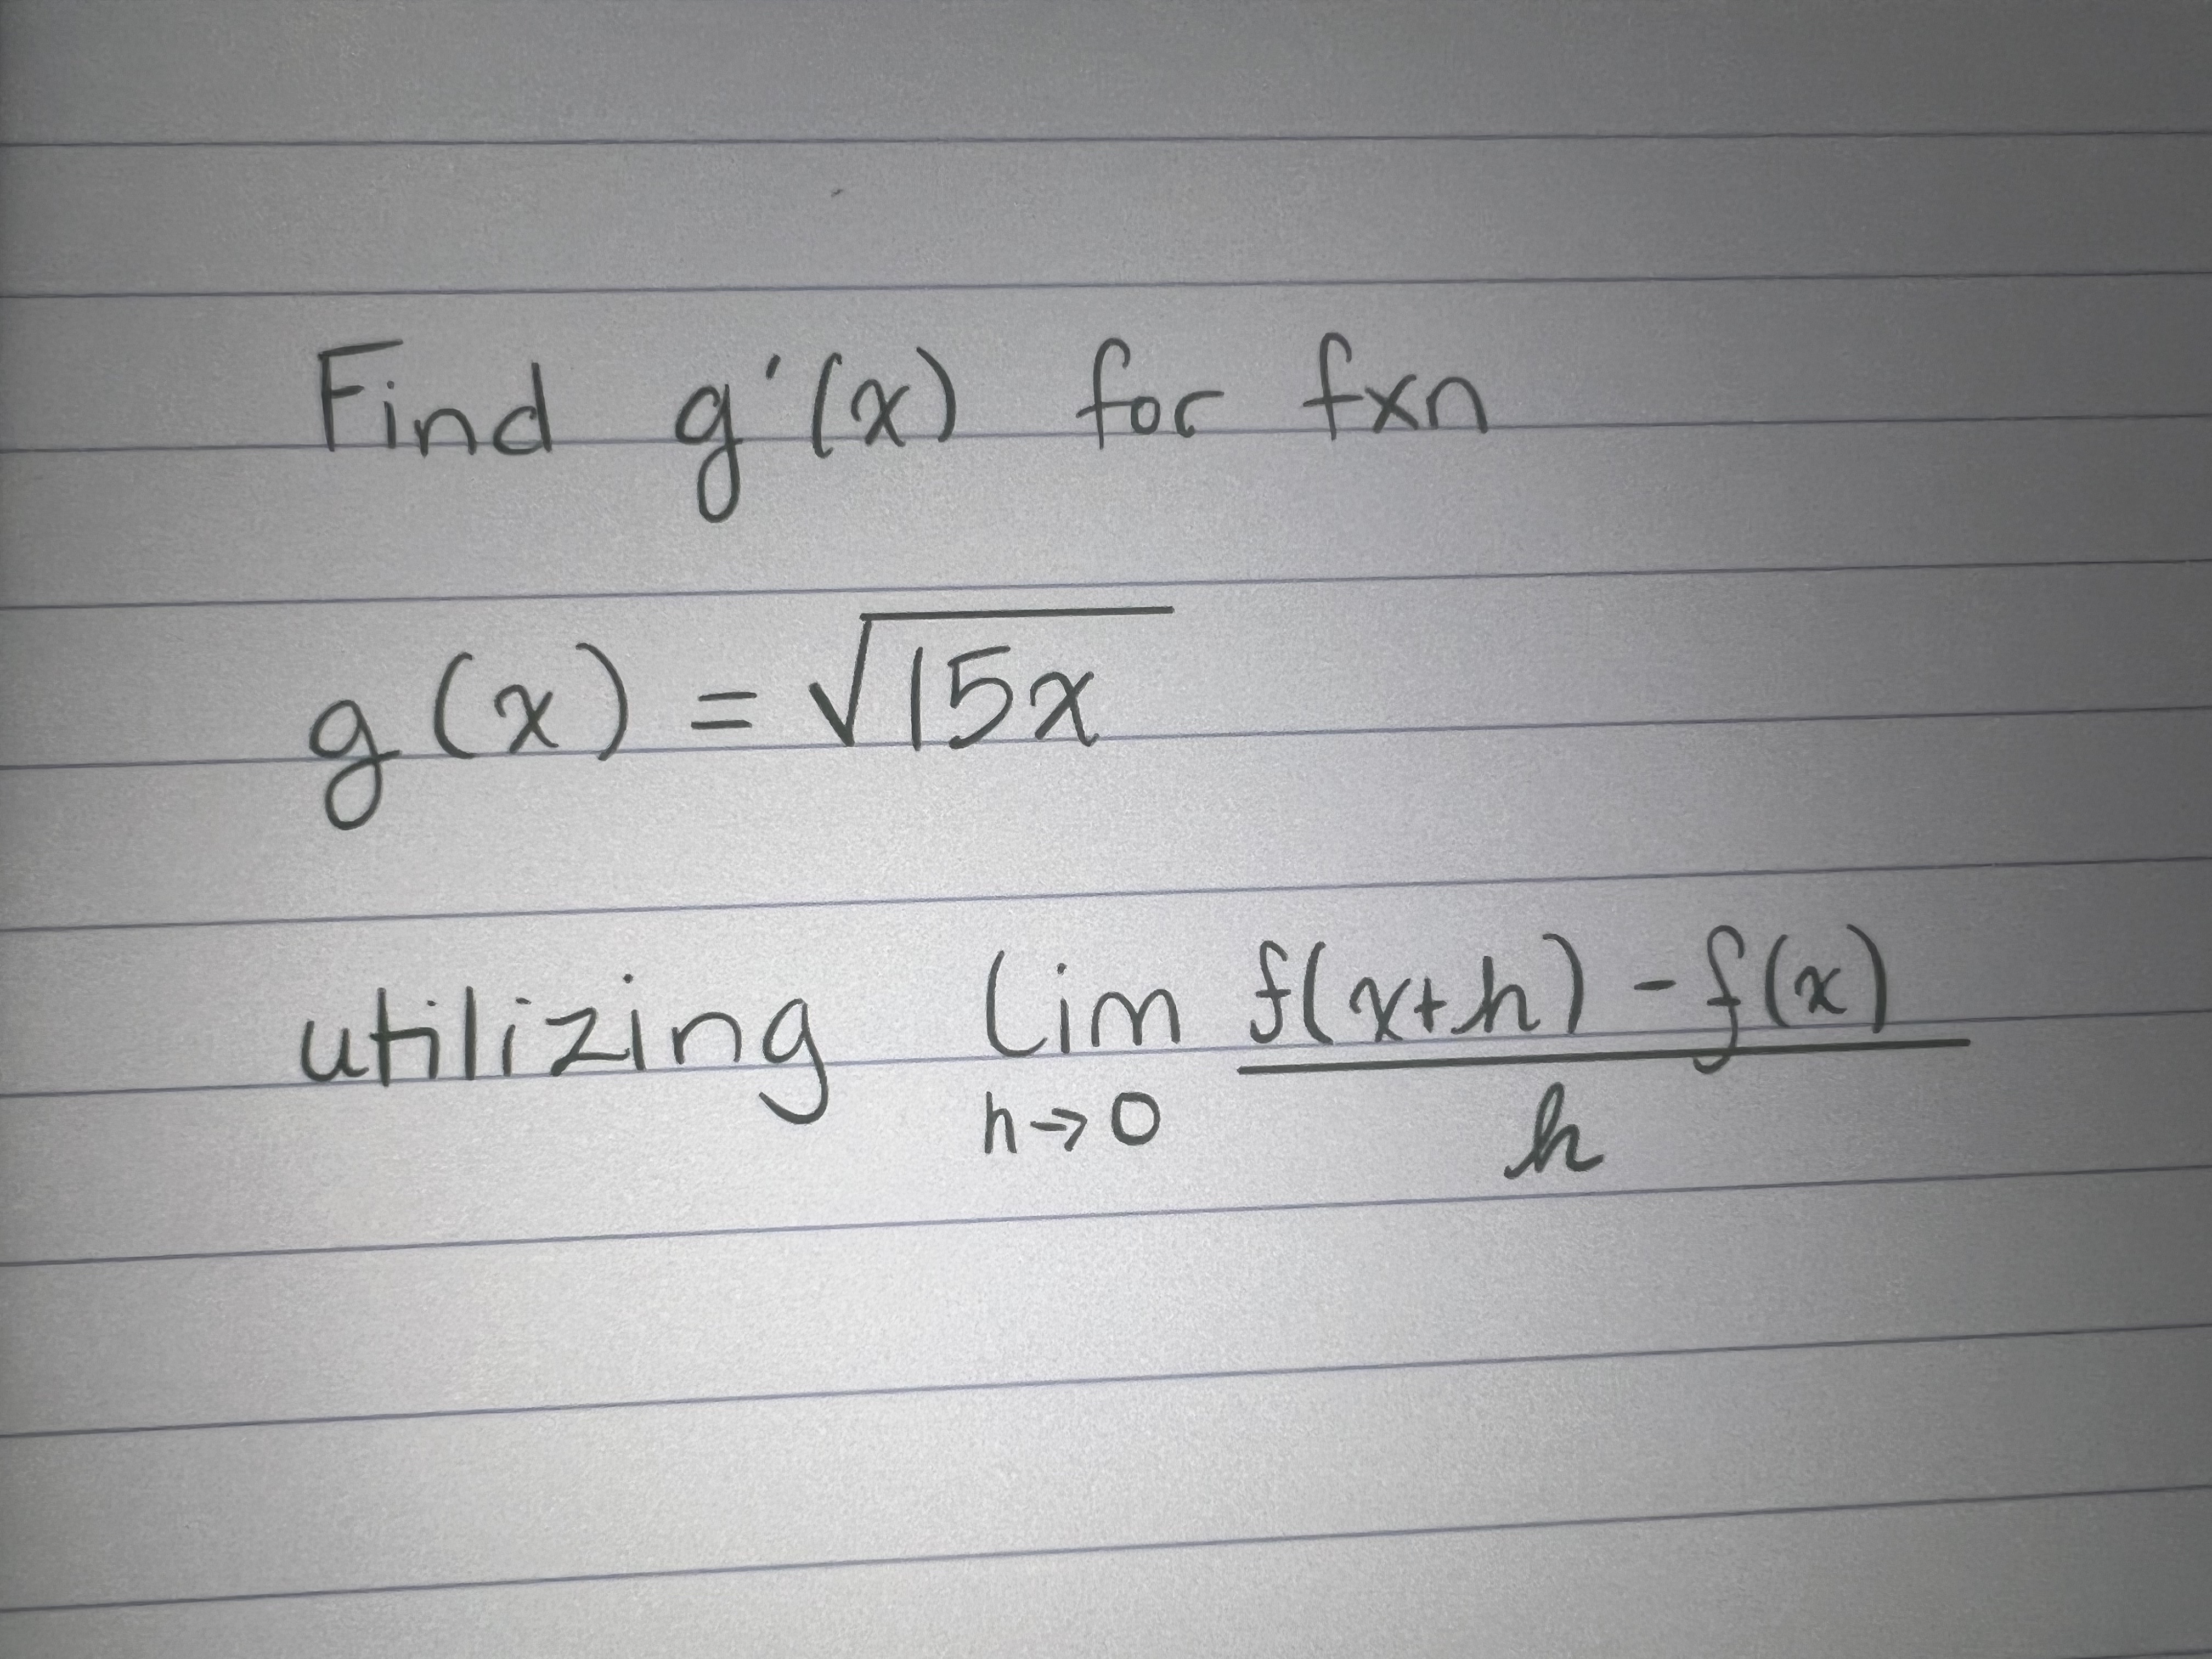 Find g'(x) for fxn
g(x) = √15x
utilizing lim f(x+h) - f(x)
h→0 h